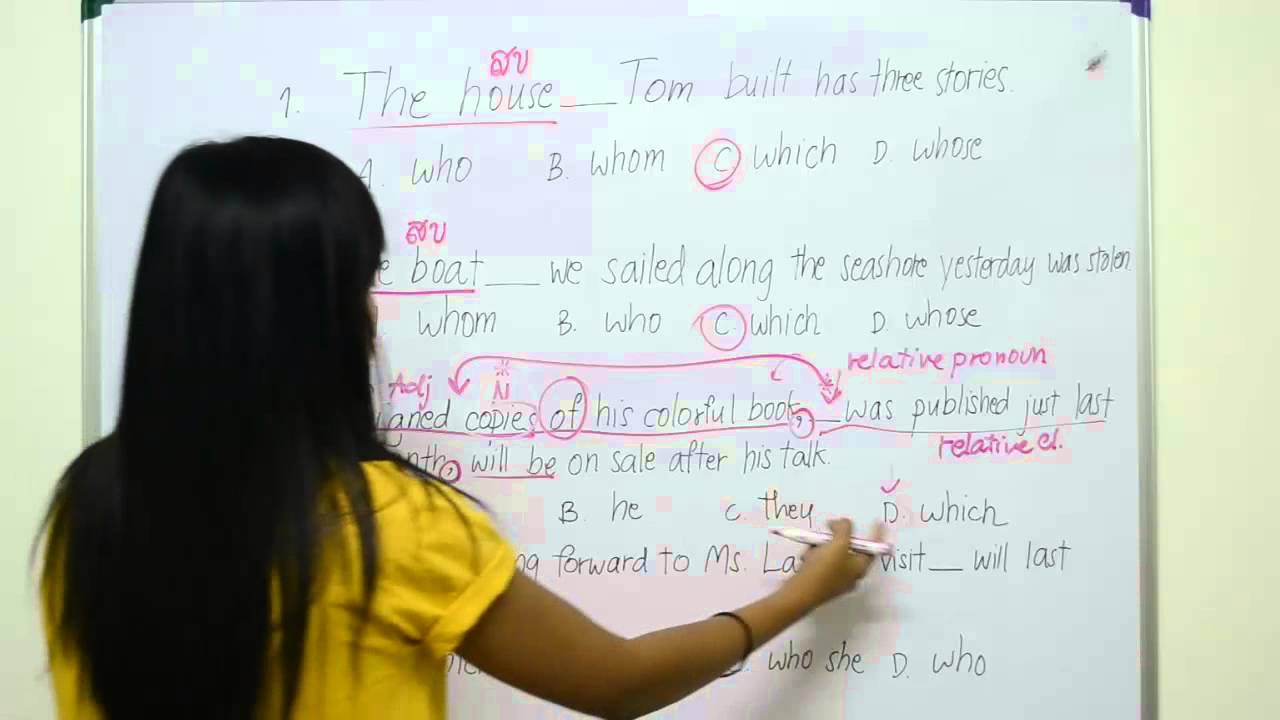 สข
1. The house ___ Tom built has three stories.
A. who B. whom C. which D. whose
สข
boat ___ we sailed along the seashore yesterday was stolen
whom B. who C. which D. whose
relative pronoun
Adj N
copies of his colorful book, __ was published just last
relative cl.
, will be on sale after his talk.
B. he C. they D. which
forward to Ms. visit __ will last
who she D. who